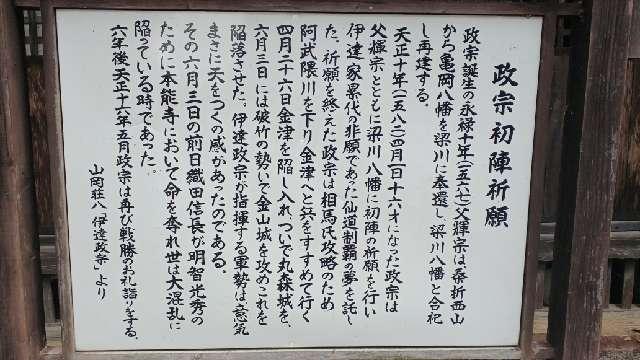 政宗初陣祈願
政宗誕生の永禄十年(一五六七)父輝宗は桑折西山
から亀岡八幡を梁川に奉還し、梁川八幡と合祀
し再建する。
天正十年(一五八二)四月一日十六才になった政宗は
父輝宗とともに梁川八幡に初陣の祈願を行い
伊達家累代の悲願であった仙道制覇の夢を託し
た。祈願を終えた政宗は相馬氏攻略のため
阿武隈川を下り金津へと兵をすすめて行く
四月二十六日金津を陥し入れ、ついで丸森城を、
六月三日には破竹の勢いで金山城を攻めこれを
陥落させた。伊達政宗が指揮する軍勢は意気
まさに天をつくの感があったのである。
その六月三日の前日織田信長が明智光秀の
ために本能寺において命を奪れ世は大混乱に
陥っている時であった。
六年後天正十六年五月政宗は再び戦勝のお礼詣りをする。
山岡荘八「伊達政宗」より